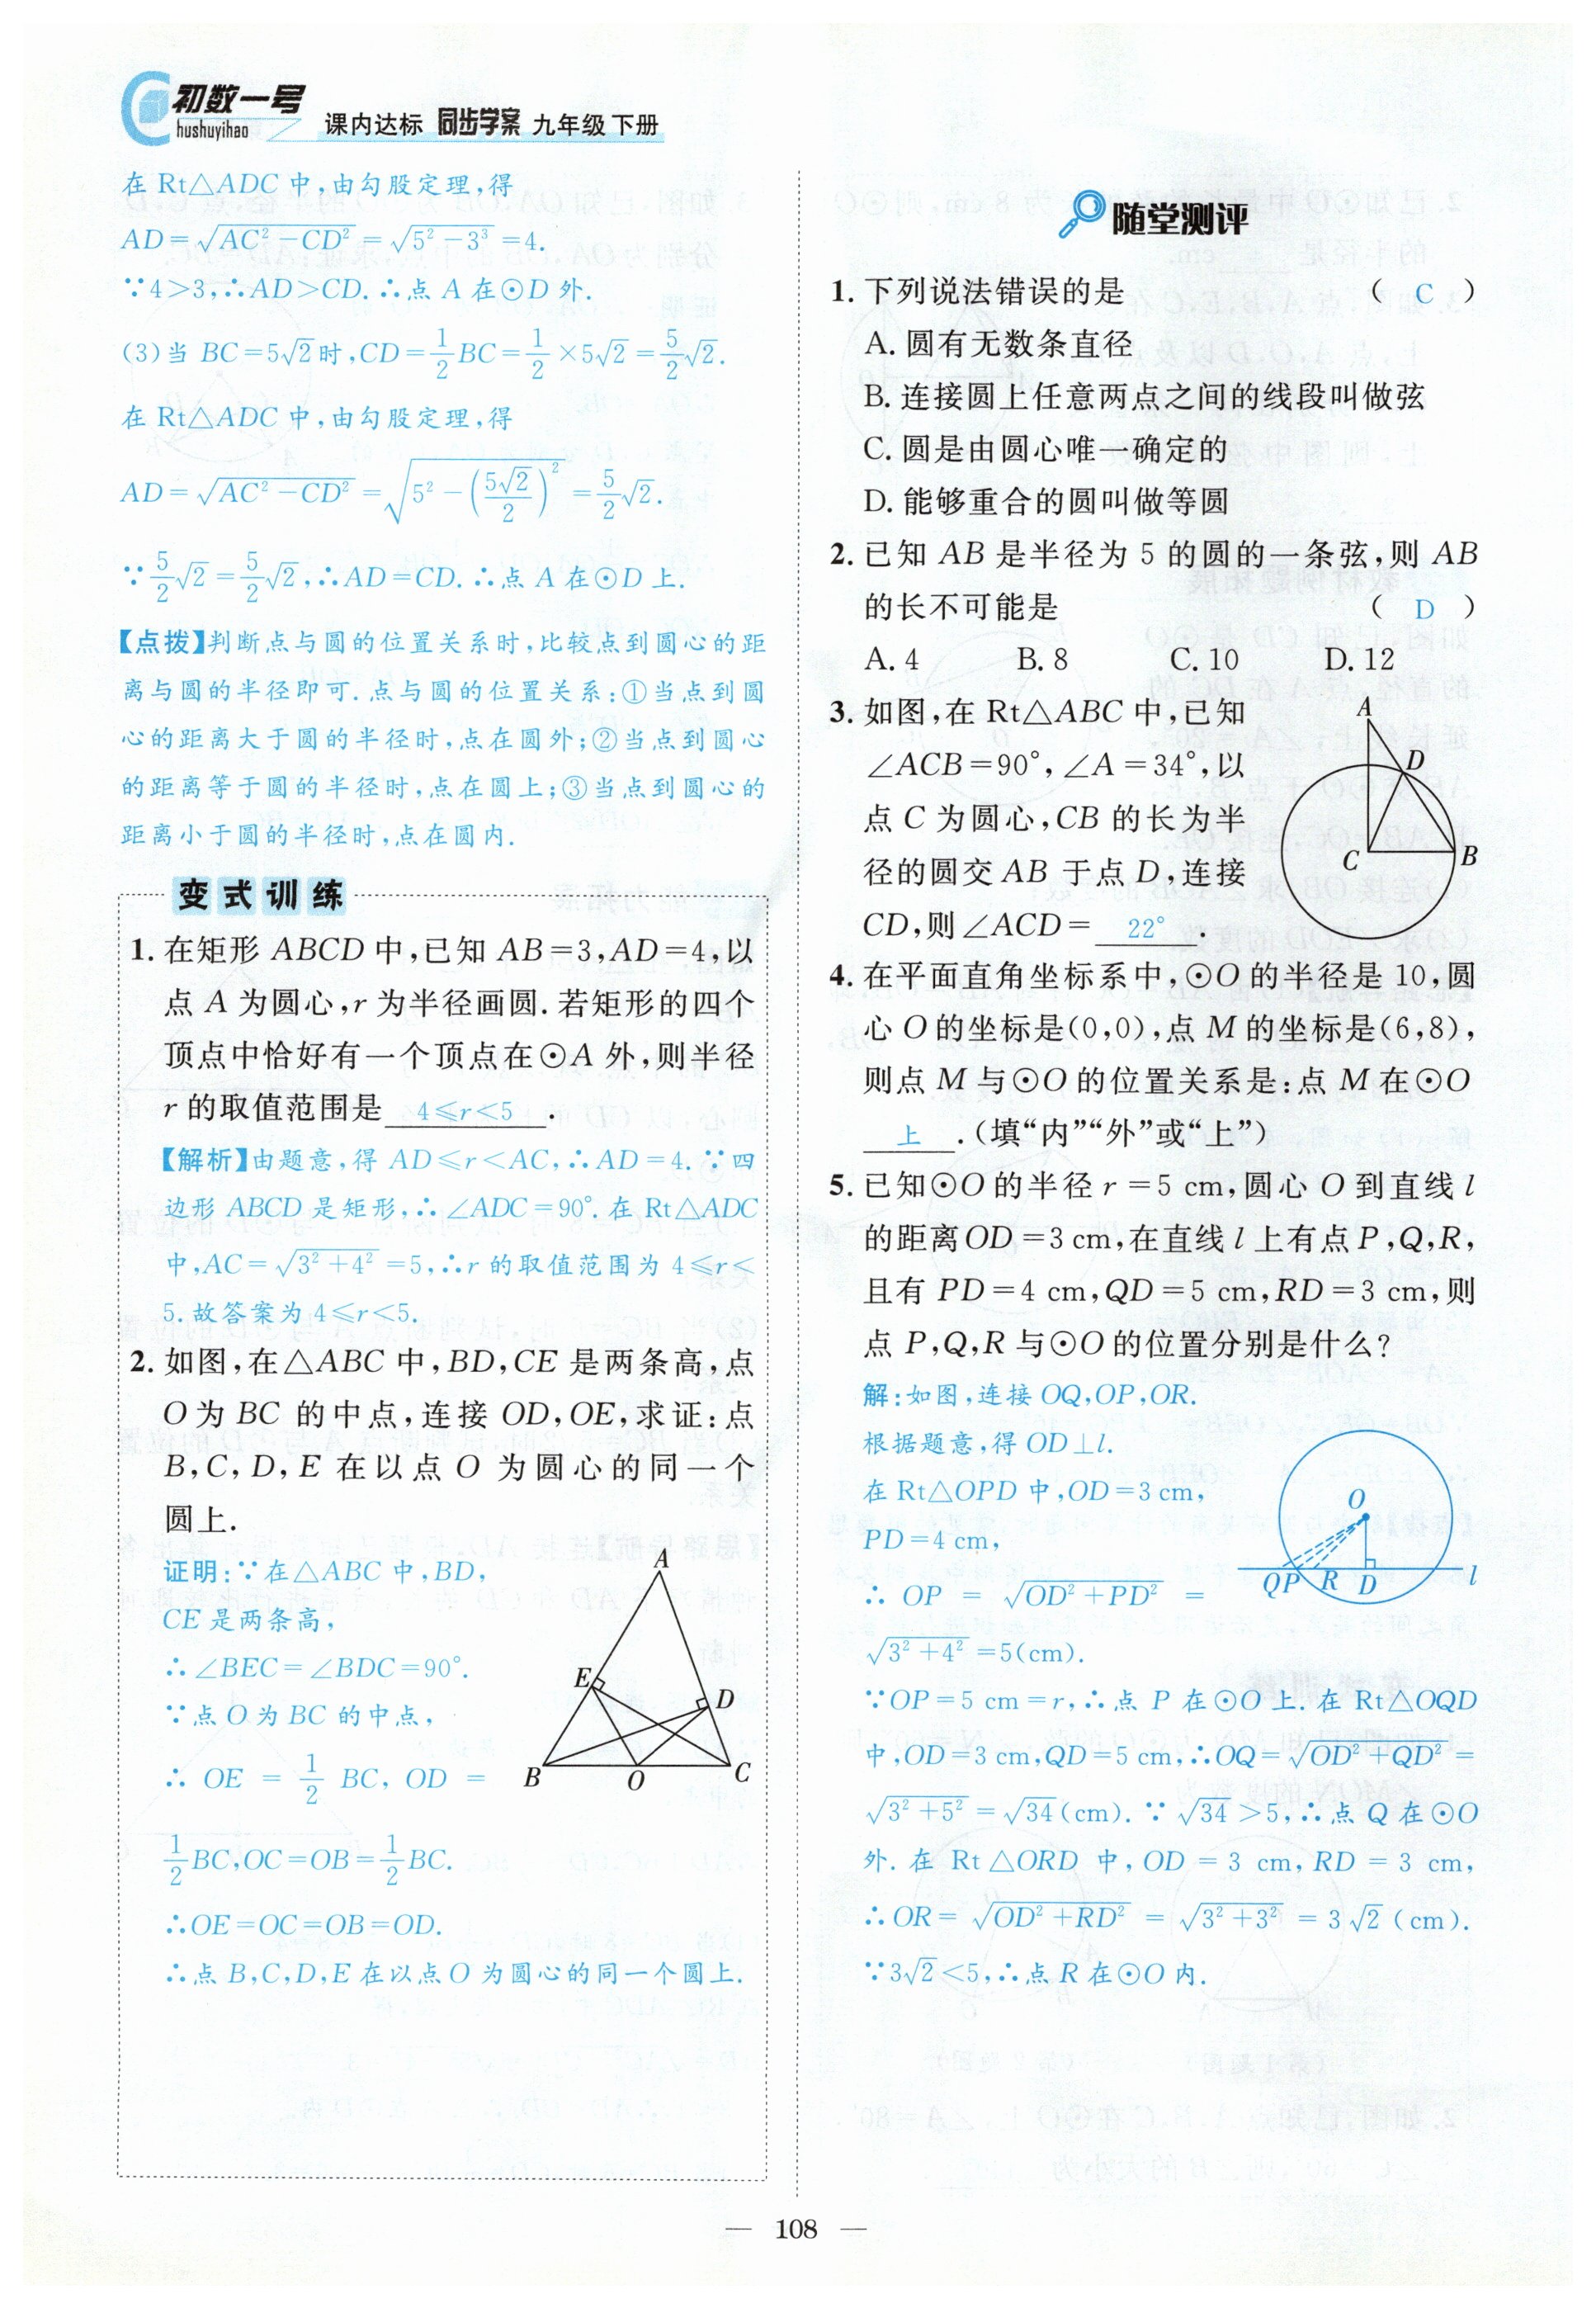 初数一号
hushuyihao
课内达标 同步学案 九年级下册
在 Rt△ADC 中,由勾股定理,得
AD=√(AC²-CD²)=√(5²-3³)=4.
∵4>3,∴AD>CD.∴点 A 在⊙D 外.
(3)当 BC=5√2时,CD=1/2BC=1/2×5√2=5/2√2.
在 Rt△ADC 中,由勾股定理,得
AD=√(AC²-CD²)=√(5²-(5√2/2)²)=5/2√2.
∵5/2√2=5/2√2,∴AD=CD.∴点 A 在⊙D 上.
【点拨】判断点与圆的位置关系时,比较点到圆心的距
离与圆的半径即可.点与圆的位置关系:①当点到圆
心的距离大于圆的半径时,点在圆外;②当点到圆心
的距离等于圆的半径时,点在圆上;③当点到圆心的
距离小于圆的半径时,点在圆内.
变式训练
1. 在矩形 ABCD 中,已知 AB=3,AD=4,以
点 A 为圆心,r 为半径画圆.若矩形的四个
顶点中恰好有一个顶点在⊙A 外,则半径
r 的取值范围是 4≤r<5 .
【解析】由题意,得 AD≤r<AC,∴AD=4.∵四
边形 ABCD 是矩形,∴∠ADC=90°.在 Rt△ADC
中,AC=√(3²+4²)=5,∴r 的取值范围为 4≤r<
5.故答案为 4≤r<5.
2. 如图,在△ABC 中,BD,CE 是两条高,点
O为 BC 的中点,连接 OD,OE,求证:点
B,C,D,E 在以点 O 为圆心的同一个
圆上.
证明:∵在△ABC 中,BD,
CE 是两条高,
∴∠BEC=∠BDC=90°.
∵点 O 为 BC 的中点,
∴ OE = 1/2 BC, OD =
1/2BC,OC=OB=1/2BC.
∴OE=OC=OB=OD.
∴点 B,C,D,E 在以点 O 为圆心的同一个圆上.
A
E
D
B
O
C
随堂测评
1. 下列说法错误的是 ( C )
A. 圆有无数条直径
B. 连接圆上任意两点之间的线段叫做弦
C. 圆是由圆心唯一确定的
D. 能够重合的圆叫做等圆
2. 已知 AB 是半径为 5 的圆的一条弦,则 AB
的长不可能是 ( D )
A. 4 B. 8 C. 10 D. 12
3. 如图,在 Rt△ABC 中,已知
∠ACB=90°,∠A=34°,以
点 C 为圆心,CB 的长为半
径的圆交 AB 于点 D,连接
CD,则∠ACD= 22° .
A
D
C
B
4. 在平面直角坐标系中,⊙O 的半径是 10,圆
心 O 的坐标是(0,0),点 M 的坐标是(6,8),
则点 M 与⊙O 的位置关系是:点 M 在⊙O
上 .(填“内”“外”或“上”)
5. 已知⊙O 的半径 r=5 cm,圆心 O 到直线 l
的距离OD=3 cm,在直线 l 上有点 P,Q,R,
且有 PD=4 cm,QD=5 cm,RD=3 cm,则
点 P,Q,R 与⊙O 的位置分别是什么?
解:如图,连接 OQ,OP,OR.
根据题意,得 OD⊥l.
在 Rt△OPD 中,OD=3 cm,
PD=4 cm,
∴ OP = √(OD²+PD²) =
√(3²+4²)=5(cm).
O
QP R D l
∵OP=5 cm=r,∴点 P 在⊙O 上.在 Rt△OQD
中,OD=3 cm,QD=5 cm,∴OQ=√(OD²+QD²)=
√(3²+5²)=√34(cm).∵√34>5,∴点 Q 在⊙O
外.在 Rt△ORD 中,OD=3 cm,RD=3 cm,
∴OR=√(OD²+RD²)=√(3²+3²)=3√2(cm).
∵3√2<5,∴点 R 在⊙O 内.
— 108 —